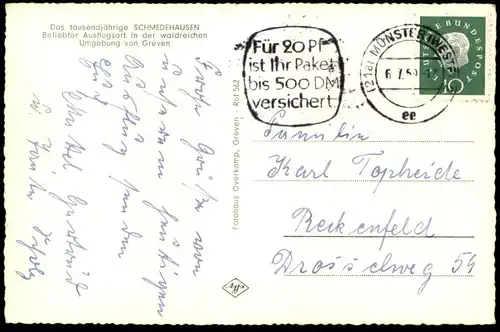 Das tausendjährige SCHMEDEHAUSEN
Beliebter Ausflugsort in der waldreichen
Umgebung von Greven
Für 20 Pf
ist Ihr Paket
bis 500 DM
versichert
(21a) MÜNSTER (WESTF)
6.7.59
ee
DEUTSCHE BUNDESPOST
10
Fotohaus Overkamp, Greven - Ruf 562
Grüße von
unserem heutigen
Ausflug senden
Onkel
u. Familie
Familie
Karl Topheide
Reckenfeld
Drosselweg 54